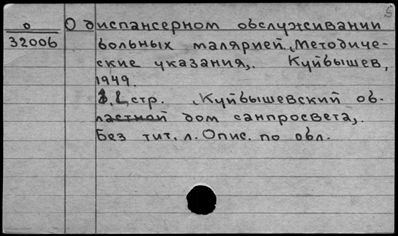 о
32006
О диспансерном обслуживании
больных малярией. Методиче-
ские указания,. Куйбышев,
1949.
стр. Куйбышевский об-
ластной дом санпросвета,.
Без тит. л. Опис. по обл.